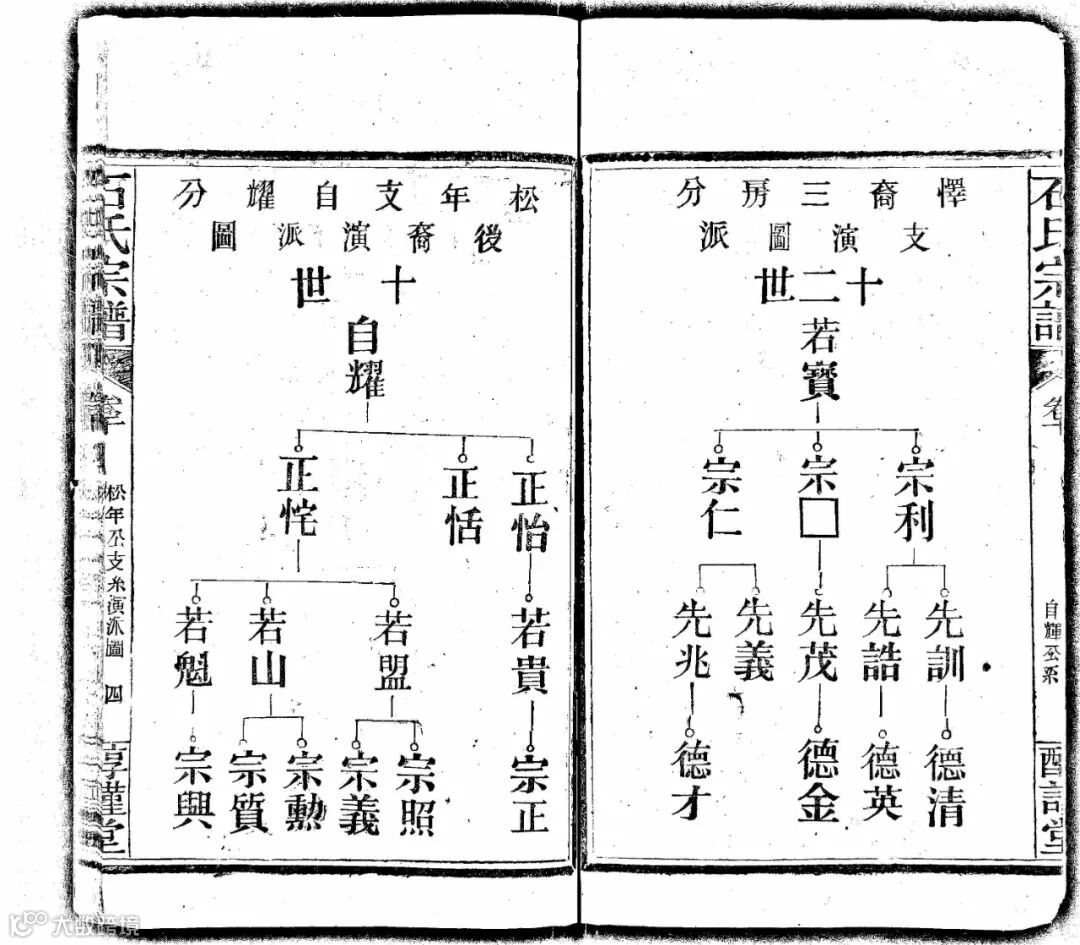 石氏宗譜
卷十
自輝公系
惇謹堂
懌裔三房分
支演圖派
十二世
若寶
宗利
宗□
宗仁
先訓
先誥
先茂
先義
先兆
德清
德英
德金
德才
松年支自耀分
後裔演派圖
十世
自耀
正怡
正恬
正恾
若貴
若盟
若山
若魁
宗正
宗照
宗義
宗勲
宗質
宗興
石氏宗譜
松年公支系演派圖
四
惇謹堂
大数跨境